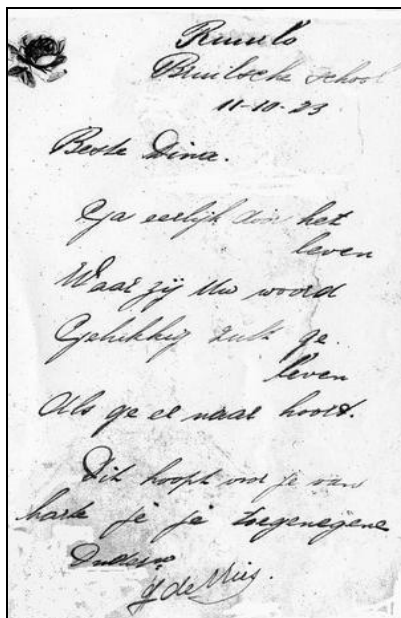 Ruurlo
Bruilsche School
11-10-23
Beste Dina.
Ga eerlijk door het
leven
Waar zij Uw woord
Gelukkig zult ge
leven
Als ge er naar hoort.
Dit hoopt voor je van
harte je je toegenegene
G de Vries.